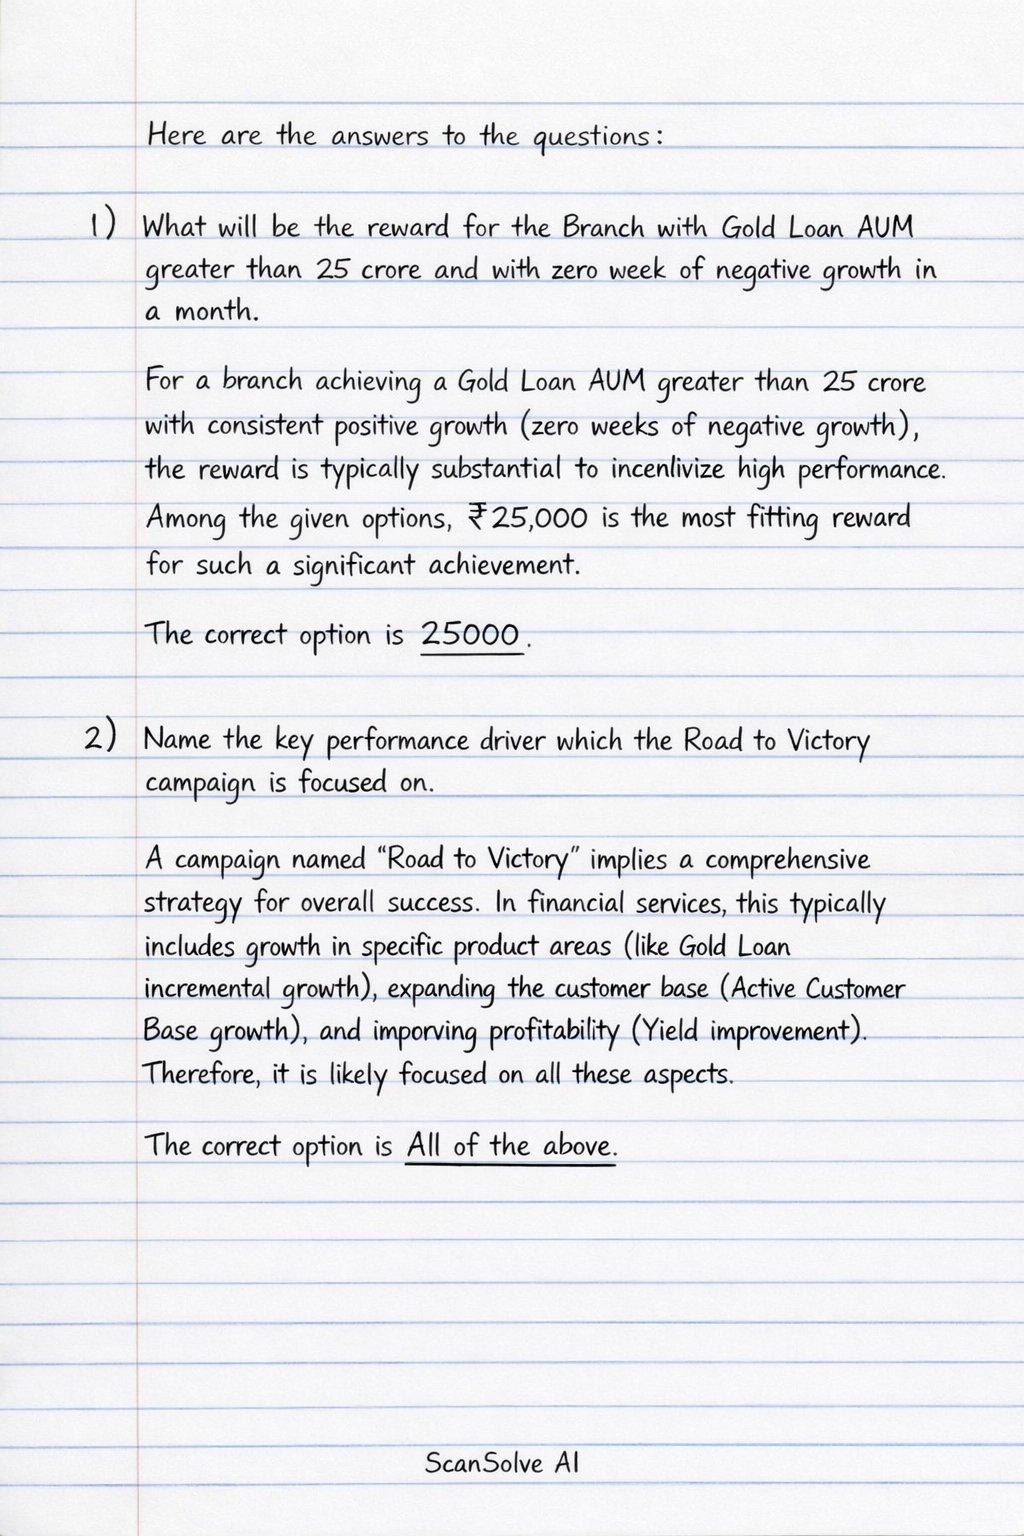 Here are the answers to the questions:
1) What will be the reward for the Branch with Gold Loan AUM
greater than 25 crore and with zero week of negative growth in
a month.
For a branch achieving a Gold Loan AUM greater than 25 crore
with consistent positive growth (zero weeks of negative growth),
the reward is typically substantial to incenlivize high performance.
Among the given options, ₹25,000 is the most fitting reward
for such a significant achievement.
The correct option is 25000.
2) Name the key performance driver which the Road to Victory
campaign is focused on.
A campaign named “Road to Victory” implies a comprehensive
strategy for overall success. In financial services, this typically
includes growth in specific product areas (like Gold Loan
incremental growth), expanding the customer base (Active Customer
Base growth), and imporving profitability (Yield improvement).
Therefore, it is likely focused on all these aspects.
The correct option is All of the above.
ScanSolve AI